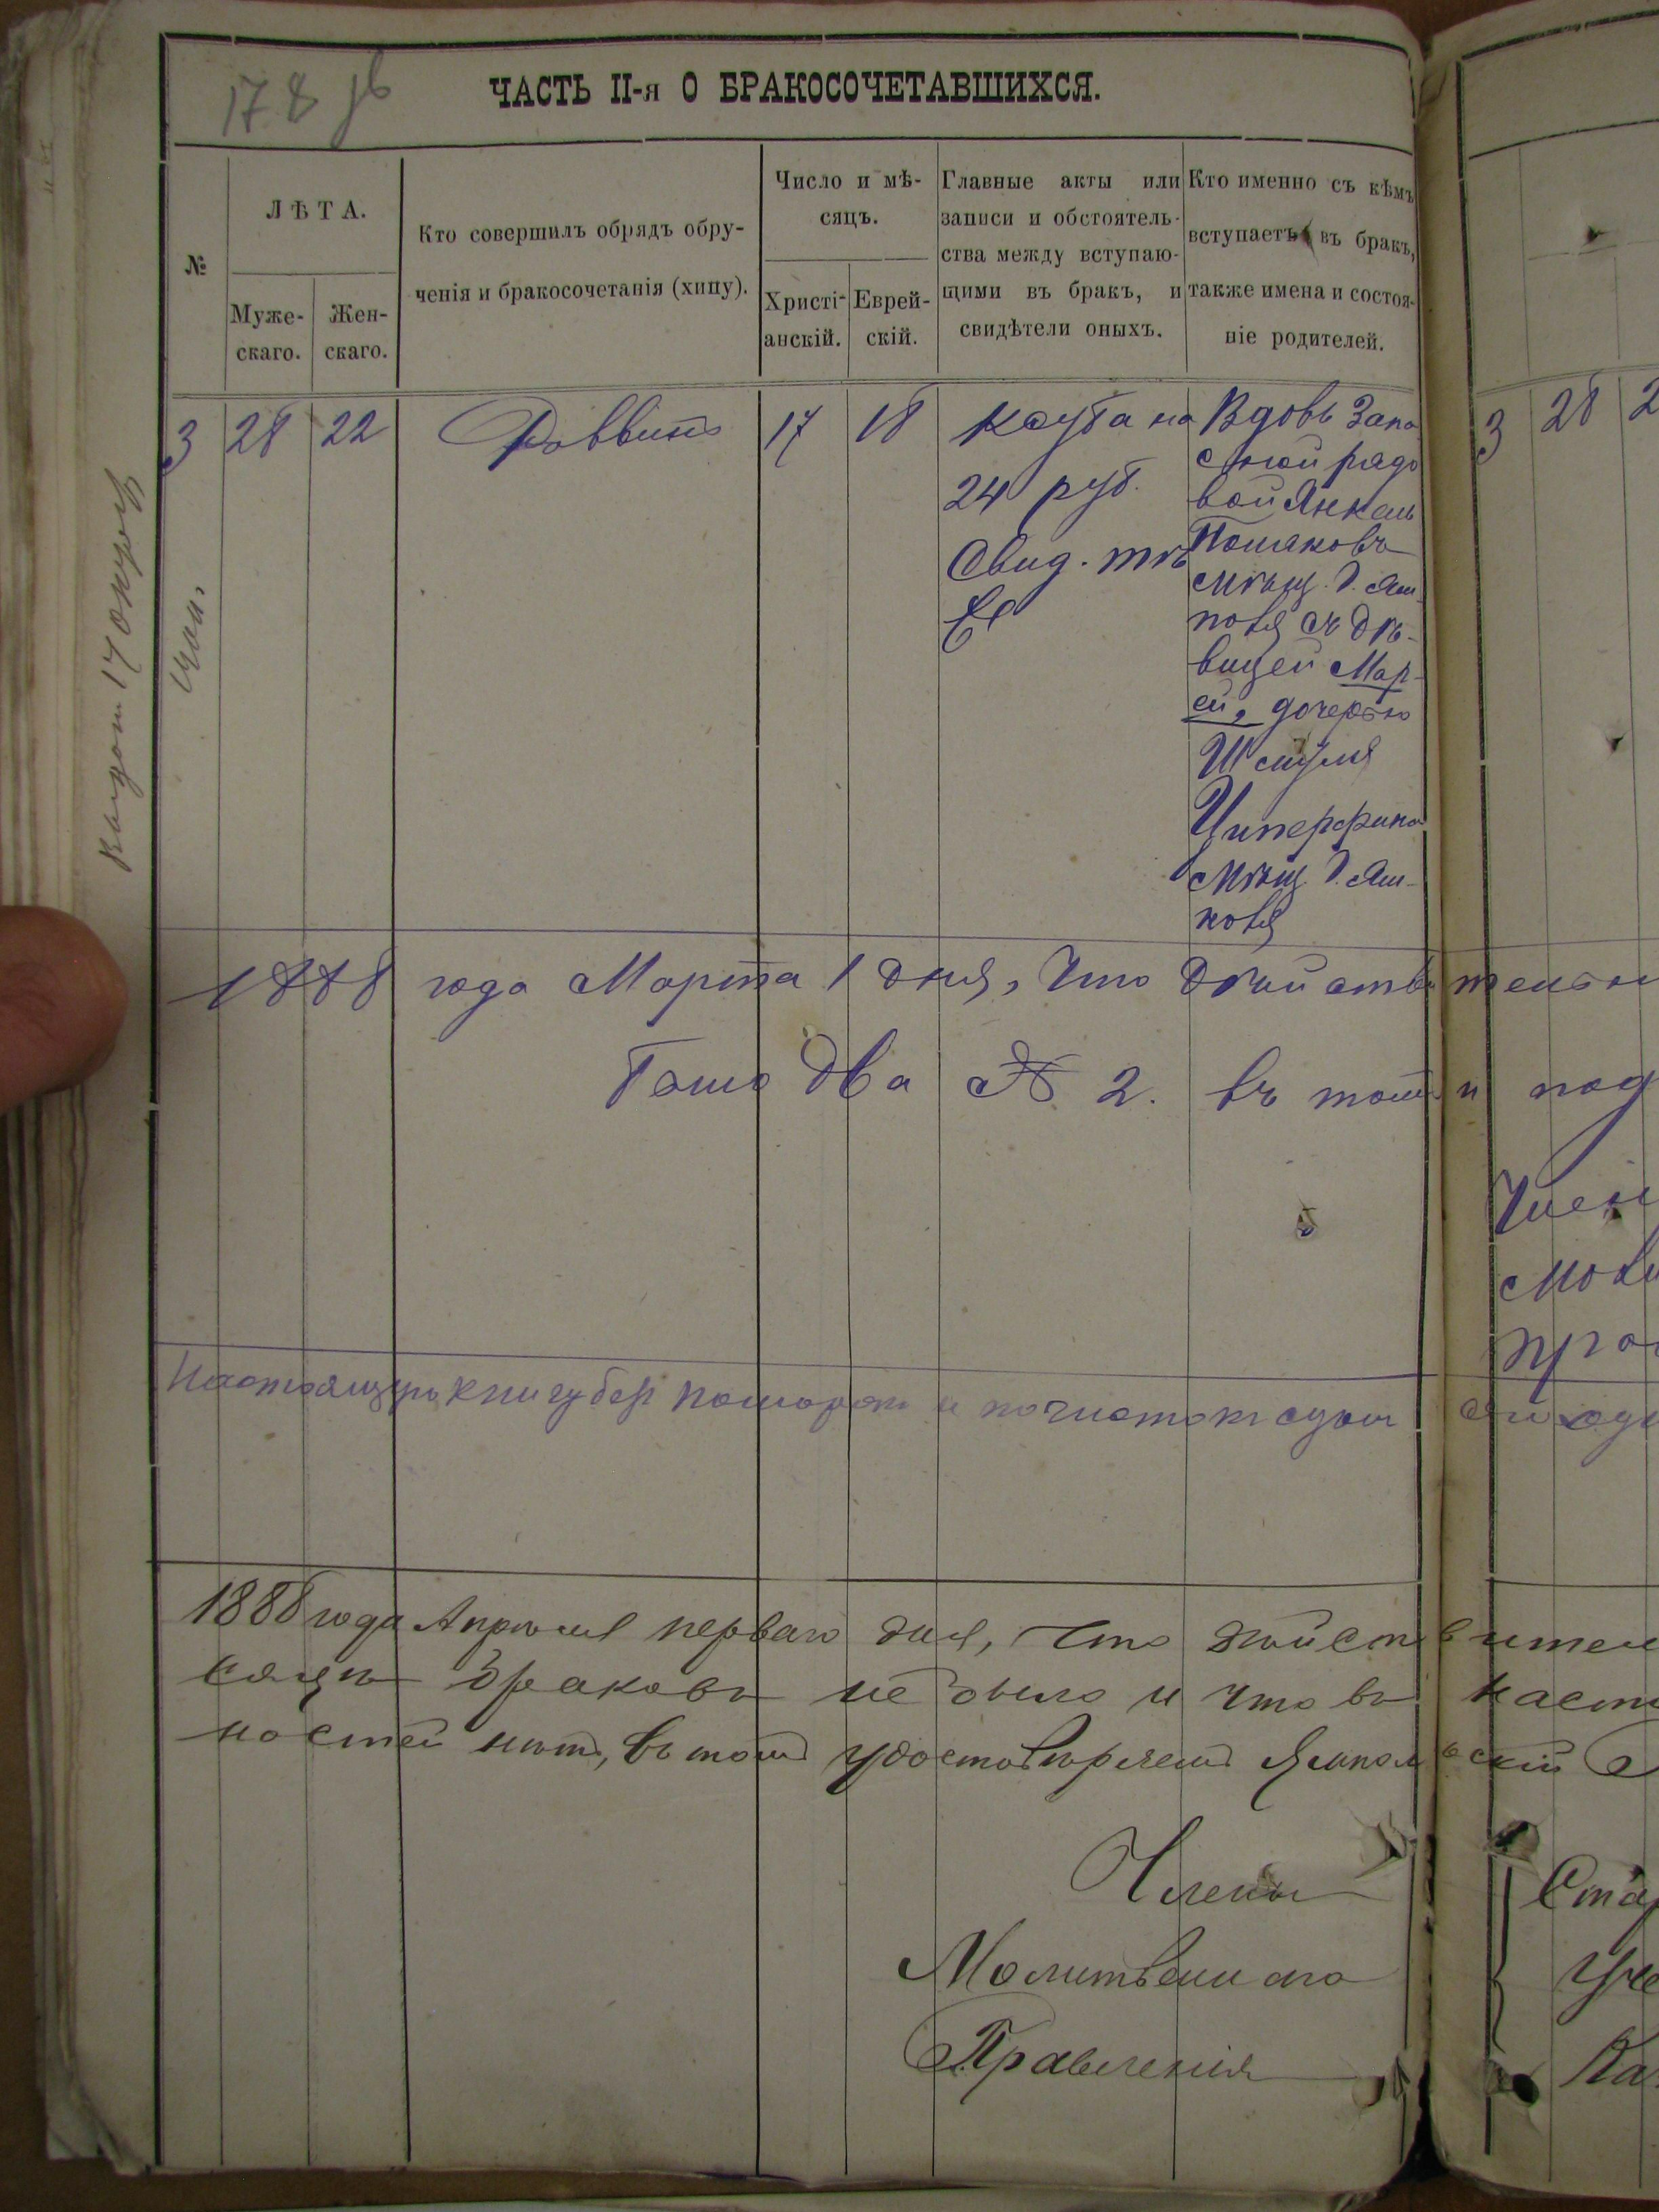 178
ЧАСТЬ II-я О БРАКОСОЧЕТАВШИХСЯ.
№
ЛѢТА.
Муже-
скаго.
Жен-
скаго.
Кто совершилъ обрядъ обру-
ченія и бракосочетанія (хипу).
Число и мѣ-
сяцъ.
Христі-
анскій.
Еврей-
скій.
Главные акты или
записи и обстоятель-
ства между вступаю-
щими въ бракъ, и
свидѣтели оныхъ.
Кто именно съ кѣмъ
вступаетъ въ бракъ,
также имена и состоя-
ніе родителей.
3
28
22
Раввинъ
17
18
Ксуба на
24 руб.
Свид. тѣ
Вдовъ Запа
сной рядо
вой Янкель
мѣщ. Ям-
поля съ дѣ-
вицей Мар-
ей, дочерью
Шмуля
Циперфина
мѣщ. Ям-
поля
17
3
28
2
1888 года Марта 1 дня, что дѣйствительн
два № 2. въ томъ и под
Член
Настоящую книгу
1888 года Апрѣля перваго дня, что дѣйствител
сяцѣ браковъ не было и что въ наст
ностей нѣтъ, въ томъ удостовѣряемъ Ямпольскій
Члены
Молитвеннаго
Правленія
Ста
Уче
Ка